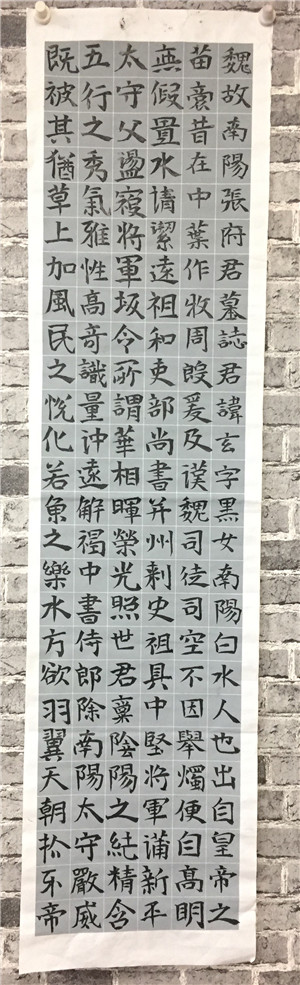 魏故南陽張府君墓誌君諱玄字黑女南陽白水人也出自皇帝之
苗裔昔在中葉作牧周殷爰及漢魏司徒司空不因舉燭便自高明
無假置水清潔遠祖和吏部尚書并州刺史祖具中堅將軍蒲新平
太守父盪寇將軍坂令所謂華相暉榮光照世君稟陰陽之純精含
五行之秀氣雅性高奇識量沖遠解褐中書侍郎除南陽太守嚴威
既被其猶草上加風民之悅化若魚之樂水方欲羽翼天朝抓牙帝